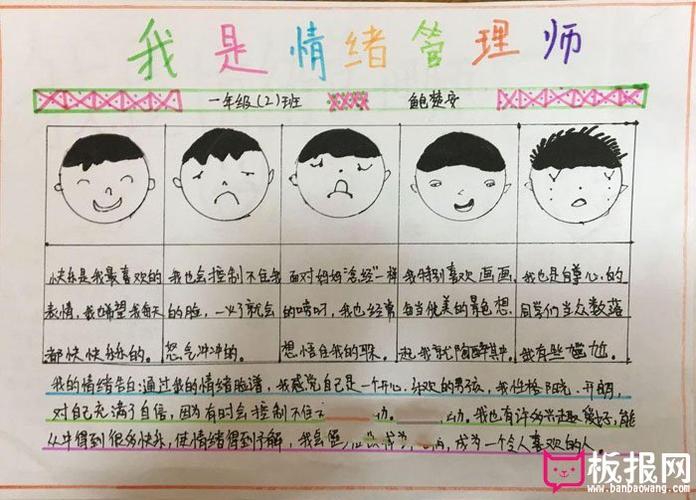 我是情绪管理师
一年级(2)班 鲍楚安
快乐是我最喜欢的
表情,我希望我每天
都快快乐乐的。
我也会控制不住我
的脸,一火了就会
怒气冲冲的。
面对妈妈"念经"一样
的唠叨,我也经常
想住我的耳朵。
我特别喜欢画画,
每当优美的景色想
起我就陶醉其中。
我也是自尊心的
同学们当众数落
我有些尴尬。
我的情绪告白:通过我的情绪脸谱,我感觉自己是一个开心、欢的男孩,我性格阳光、开朗,
对自己充满了自信,因为有时会控制不住 功。动。我也有许多兴趣爱好,能
从中得到很多快乐,使情绪得到解,我会 成为一个令人喜欢的人。
板报网
www.banbaowang.com